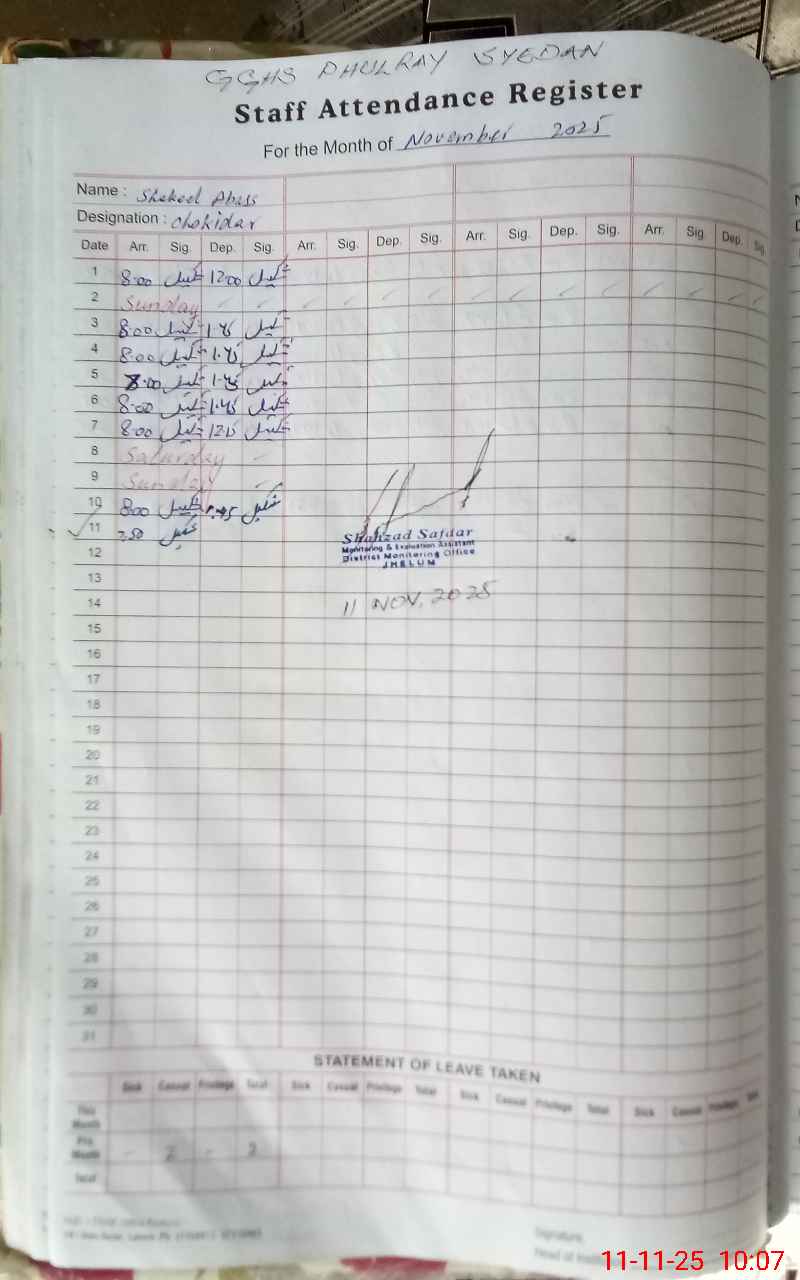 GGHS DHULRAY SYEDAN
Staff Attendance Register
For the Month of November 2025
Name : Shakeel Abass
Designation : Chokidar
Date Arr. Sig. Dep. Sig. Arr. Sig. Dep. Sig. Arr. Sig. Dep. Sig. Arr. Sig. Dep. Sig.
1 8:00 شکیل 12:00 شکیل
2 Sunday
3 8:00 شکیل 1:45 شکیل
4 8:00 شکیل 1:45 شکیل
5 8:00 شکیل 1:45 شکیل
6 8:00 شکیل 1:45 شکیل
7 8:00 شکیل 12:15 شکیل
8 Saturday
9 Sunday
10 8:00 شکیل 1:45 شکیل
11 7:50 شکیل
Shahzad Safdar
Monitoring & Evaluation Assistant
District Monitoring Office
JHELUM
12
13
14
11 NOV, 2025
15
16
17
18
19
20
21
22
23
24
25
26
27
28
29
30
31
STATEMENT OF LEAVE TAKEN
Sick Casual Privilege Total Sick Casual Privilege Total Sick Casual Privilege Total Sick Casual Privilege
This Month
Pre. Month - 2 - 2
Total
Signature
Head of
11-11-25 10:07